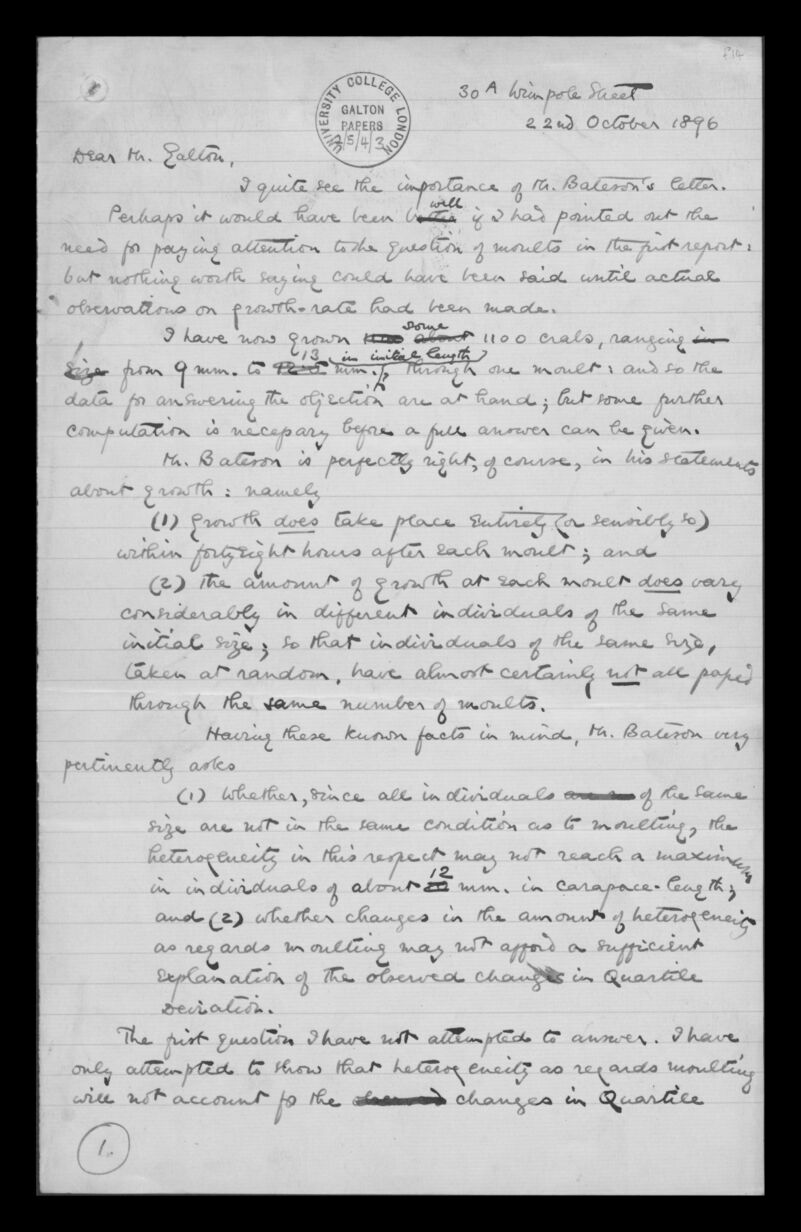 f14
UNIVERSITY COLLEGE LONDON
GALTON
PAPERS
2/5/4/3
30A Wimpole Street
22nd October 1896
Dear Mr. Galton,
I quite see the importance of Mr. Bateson's letter.
well
Perhaps it would have been better if I had pointed out the
need for paying attention to the question of moults in the first report:
but nothing worth saying could have been said until actual
observations on growth-rate had been made.
some
I have now grown about 1100 crabs, ranging in
13 in initial length
size from 9 mm. to mm., through one moult: and so the
data for answering the objection are at hand; but some further
computation is necessary before a full answer can be given.
Mr. Bateson is perfectly right, of course, in his statements
about growth: namely
(1) Growth does take place entirely (or sensibly so)
within forty eight hours after each moult; and
(2) the amount of growth at each moult does vary
considerably in different individuals of the same
initial size; so that individuals of the same size,
taken at random, have almost certainly not all passed
through the same number of moults.
Having these known facts in mind, Mr. Bateson very
pertinently asks
(1) Whether, since all individuals of the same
size are not in the same condition as to moulting, the
heterogeneity in this respect may not reach a maximum
12
in individuals of about mm. in carapace-length;
and (2) whether changes in the amount of heterogeneity
as regards moulting may not afford a sufficient
explanation of the observed changes in Quartile
Deviation.
The first question I have not attempted to answer. I have
only attempted to show that heterogeneity as regards moulting
will not account for the observed changes in Quartile
1.